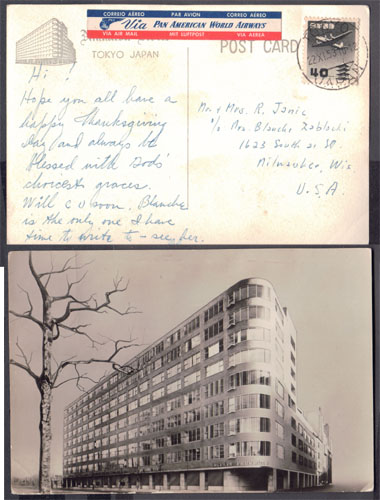 CORREIO AÉREO PAR AVION CORREO AÉREO
Via PAN AMERICAN WORLD AIRWAYS
VIA AIR MAIL MIT LUFTPOST VIA AEREA
TOKYO JAPAN
POST CARD
40
JAPAN
Hi!
Hope you all have a
happy Thanksgiving
Day and always be
blessed with Gods'
choicest graces.
Will c u soon. Blanche
is the only one I have
time to write to - so,
Mr. & Mrs. R. Janic
c/o Mrs. Blanche Zablocki
1623 South 21 St.
Milwaukee, Wis.
U.S.A.